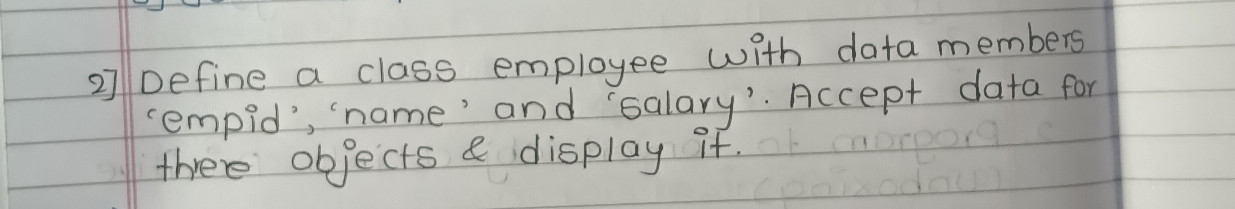 2] Define a class employee with data members
'empid', 'name' and 'salary'. Accept data for
three objects & display it.